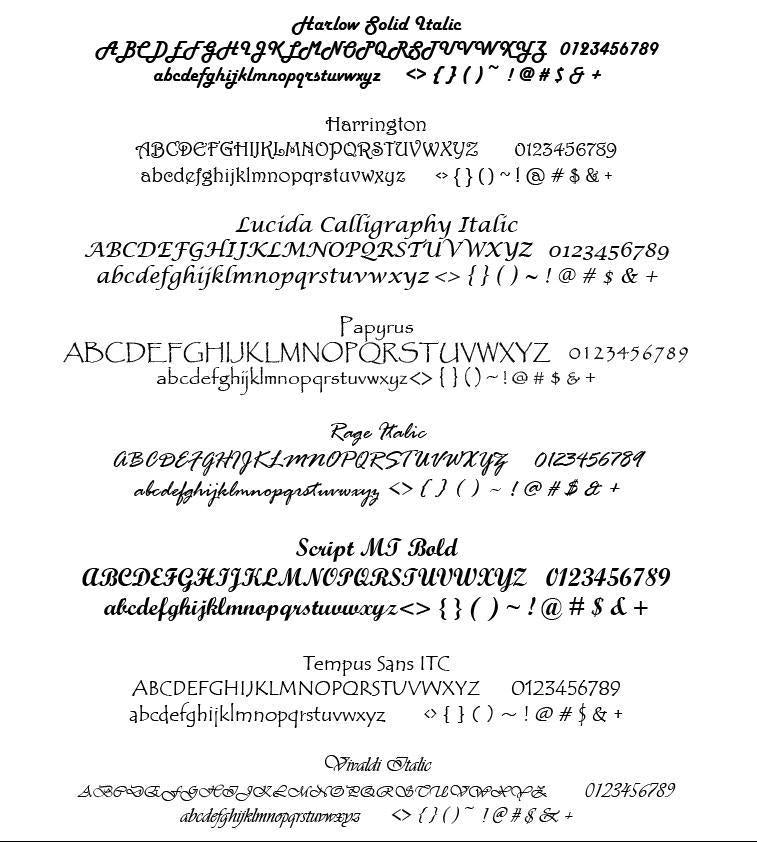 Harlow Solid Italic
ABCDEFGHIJKLMNOPQRSTUVWXYZ 0123456789
abcdefghijklmnopqrstuvwxyz <> { } ( ) ~ ! @ # $ & +
Harrington
ABCDEFGHIJKLMNOPQRSTUVWXYZ 0123456789
abcdefghijklmnopqrstuvwxyz <> { } ( ) ~ ! @ # $ & +
Lucida Calligraphy Italic
ABCDEFGHIJKLMNOPQRSTUVWXYZ 0123456789
abcdefghijklmnopqrstuvwxyz <> { } ( ) ~ ! @ # $ & +
Papyrus
ABCDEFGHIJKLMNOPQRSTUVWXYZ 0123456789
abcdefghijklmnopqrstuvwxyz<> { } ( ) ~ ! @ # $ & +
Rage Italic
ABCDEFGHIJKLMNOPQRSTUVWXYZ 0123456789
abcdefghijklmnopqrstuvwxyz <> { } ( ) ~ ! @ # $ & +
Script MT Bold
ABCDEFGHIJKLMNOPQRSTUVWXYZ 0123456789
abcdefghijklmnopqrstuvwxyz<> { } ( ) ~ ! @ # $ & +
Tempus Sans ITC
ABCDEFGHIJKLMNOPQRSTUVWXYZ 0123456789
abcdefghijklmnopqrstuvwxyz <> { } ( ) ~ ! @ # $ & +
Vivaldi Italic
ABCDEFGHIJKLMNOPQRSTUVWXYZ 0123456789
abcdefghijklmnopqrstuvwxyz <> { } ( ) ~ ! @ # $ & +